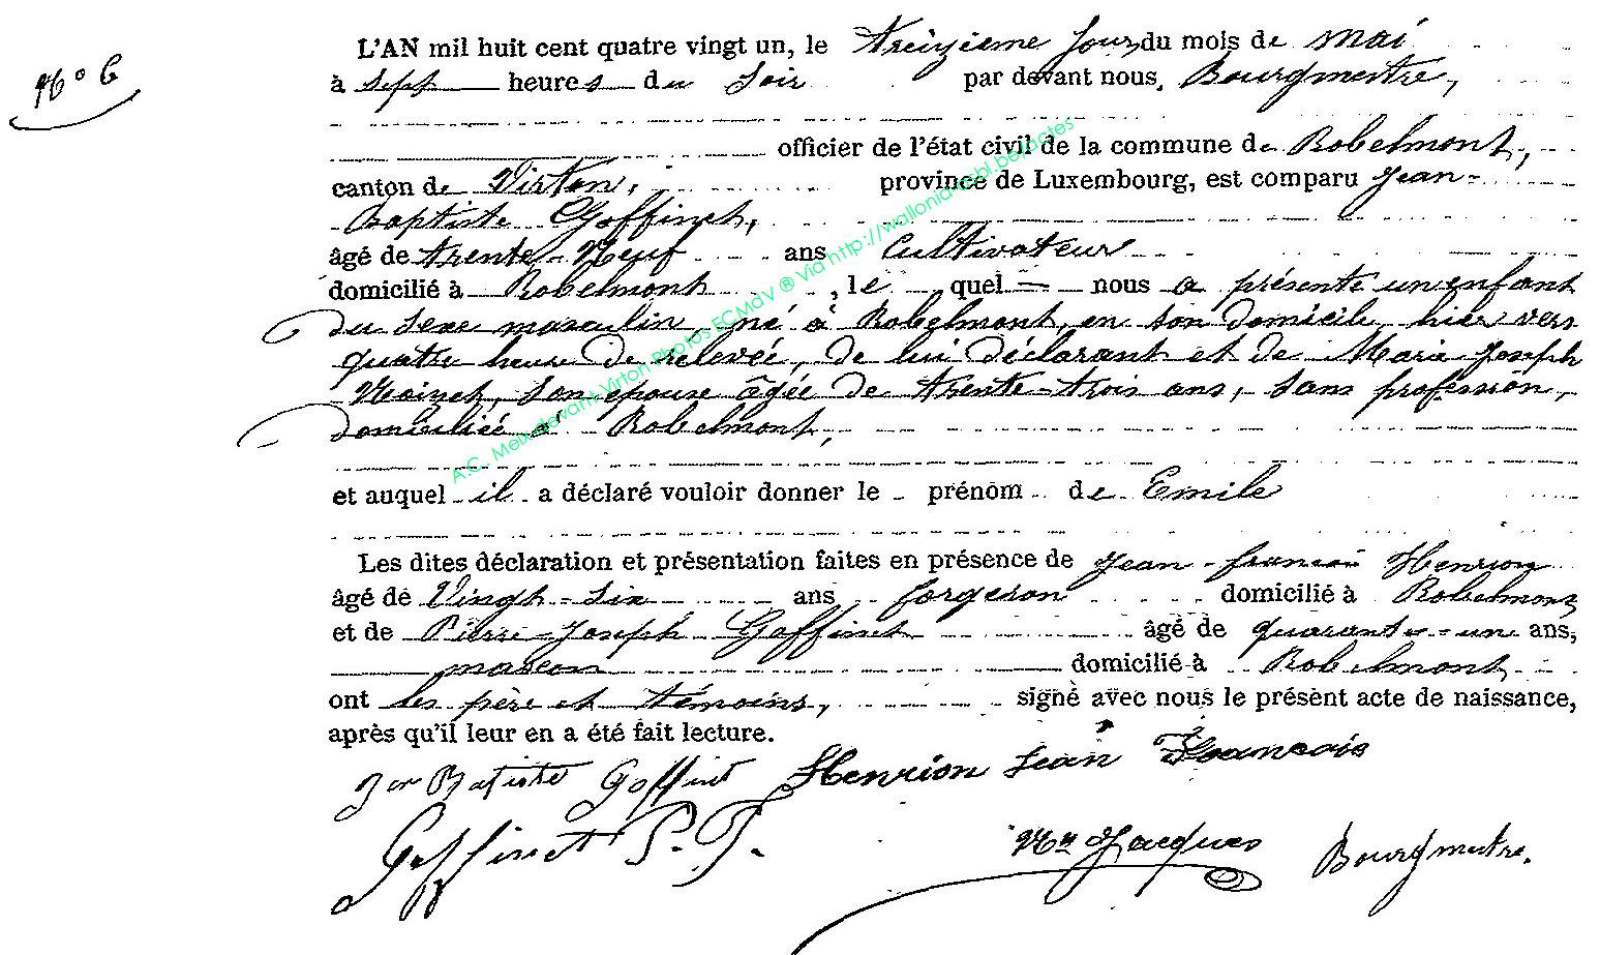 L'AN mil huit cent quatre vingt un, le treizieme jour du mois de mai
N° 6
à sept heures du soir par devant nous, Bourgmestre,
officier de l'état civil de la commune de Robelmont,
canton de Virton, province de Luxembourg, est comparu Jean-
Baptiste Goffinet,
âgé de trente-Neuf ans Cultivateur
domicilié à Robelmont, le quel nous a présenté un enfant
du sexe masculin, né à Robelmont, en son domicile, hier vers
quatre heure de relevée, de lui déclarant et de Marie Joseph
son épouse âgée de trente-trois ans, sans profession,
domiciliée à Robelmont,
et auquel il a déclaré vouloir donner le prénom de Emile
Les dites déclaration et présentation faites en présence de Jean-françois Henrion
âgé de Vingt-six ans forgeron domicilié à Robelmont
et de Pierre-Joseph Goffinet âgé de quarante-un ans,
macon domicilié à Robelmont,
ont les père et témoins, signé avec nous le présent acte de naissance,
après qu'il leur en a été fait lecture.
Jan Batiste Goffinet Henrion Jean Francois
Goffinet P. J.
Jacques Bourgmestre.
A.C. Meix-devant-Virton Photos ECMdV ® Via http://wallonia-asbl.be/actes